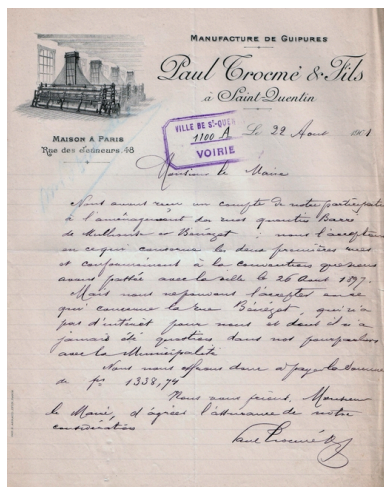 MANUFACTURE DE GUIPURES
Paul Trocmé & Fils
à Saint-Quentin
MAISON A PARIS
Rue des Jeûneurs, 48
VILLE DE St-QUEN
1100 A
VOIRIE
Le 22 Aout 190
Monsieur le Maire
Nous avons reçu un compte de notre participation
à l'aménagement des rues quentin Barré
de Mulhouse et Bénézet nous l'acceptons
en ce qui concerne les deux premières rues
et conformément à la convention que nous
avons passée avec la ville le 26 Aout 1897.
Mais nous ne pouvons l'accepter en ce
qui concerne la rue Bénézet, qui n'a
pas d'intérêt pour nous et dont il n'a
jamais été question dans nos pourparlers
avec la Municipalité
Nous nous offrons donc à payer la somme
de frs 1338,74
Nous vous prions, Monsieur
le Maire, d'agréer l'assurance de notre
considération
Paul Trocmé